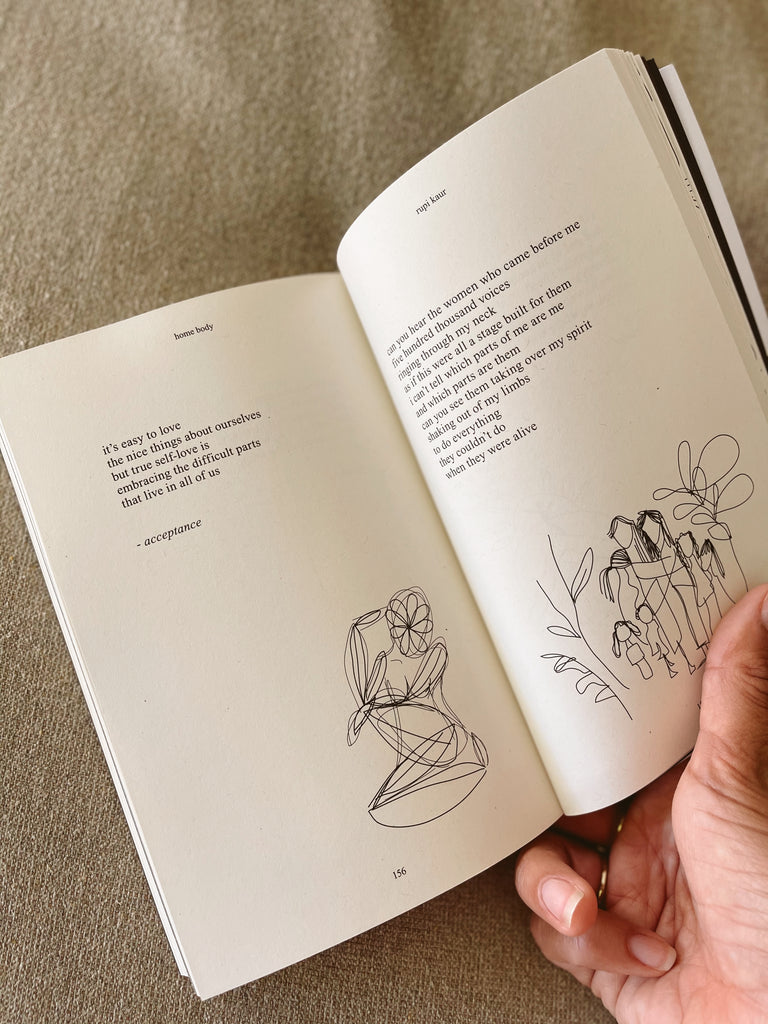 home body
it's easy to love
the nice things about ourselves
but true self-love is
embracing the difficult parts
that live in all of us
- acceptance
156
rupi kaur
can you hear the women who came before me
five hundred thousand voices
ringing through my neck
as if this were all a stage built for them
i can't tell which parts of me are me
and which parts are them
can you see them taking over my spirit
shaking out of my limbs
to do everything
they couldn't do
when they were alive